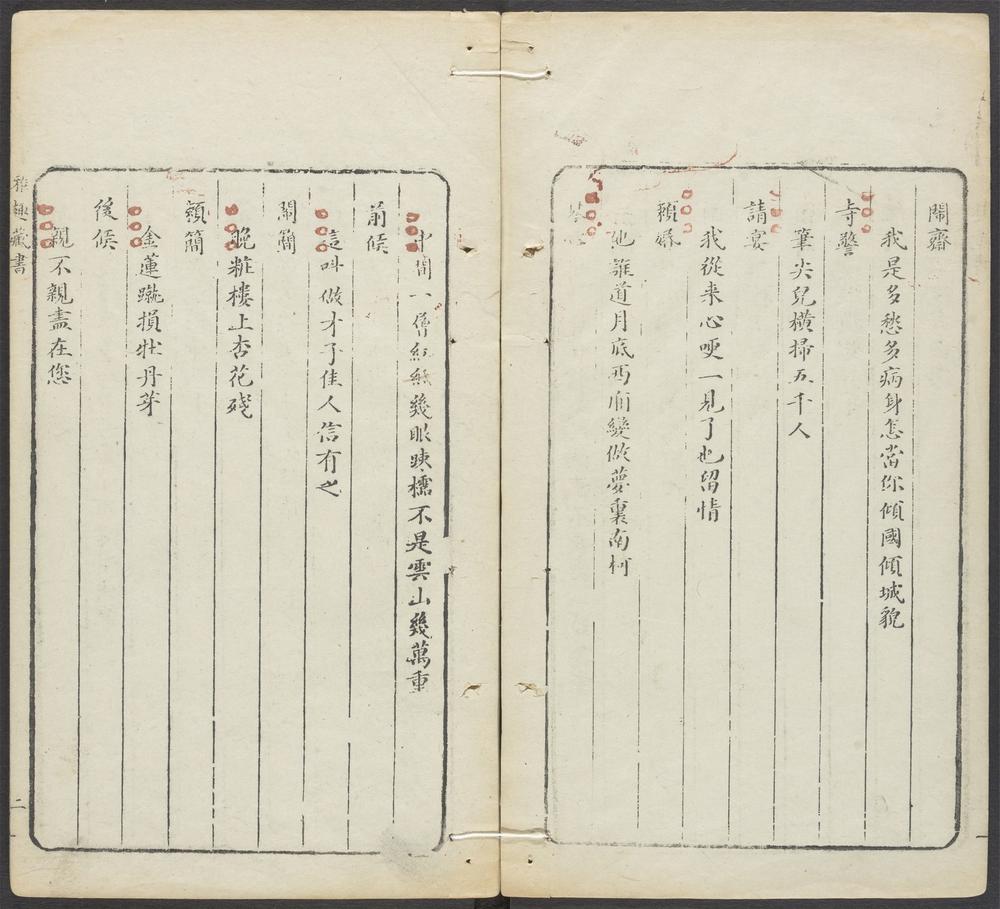 鬧齋
我是多愁多病身怎當你傾國傾城貌
寺警
筆尖兒橫掃五千人
請宴
我從来心硬一見了也留情
賴婚
他誰道月底西廂變做夢裏南柯
中間一層紅紙幾眼踈櫺不是雲山幾萬重
前候
這叫做才子佳人信有之
鬧簡
晚粧樓上杏花殘
頼簡
金蓮蹴損牡丹芽
後候
親不親盡在您
雅趣藏書
二